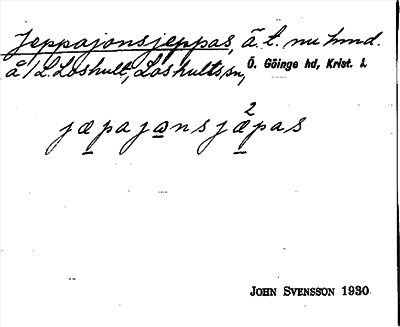 Jeppajonsjeppas, ä. t. nu hmd.
å 1 L. Loshult, Loshults sn, Ö. Göinge hd, Krist. l.
2
jæpajonsjæpas
JOHN SVENSSON 1930